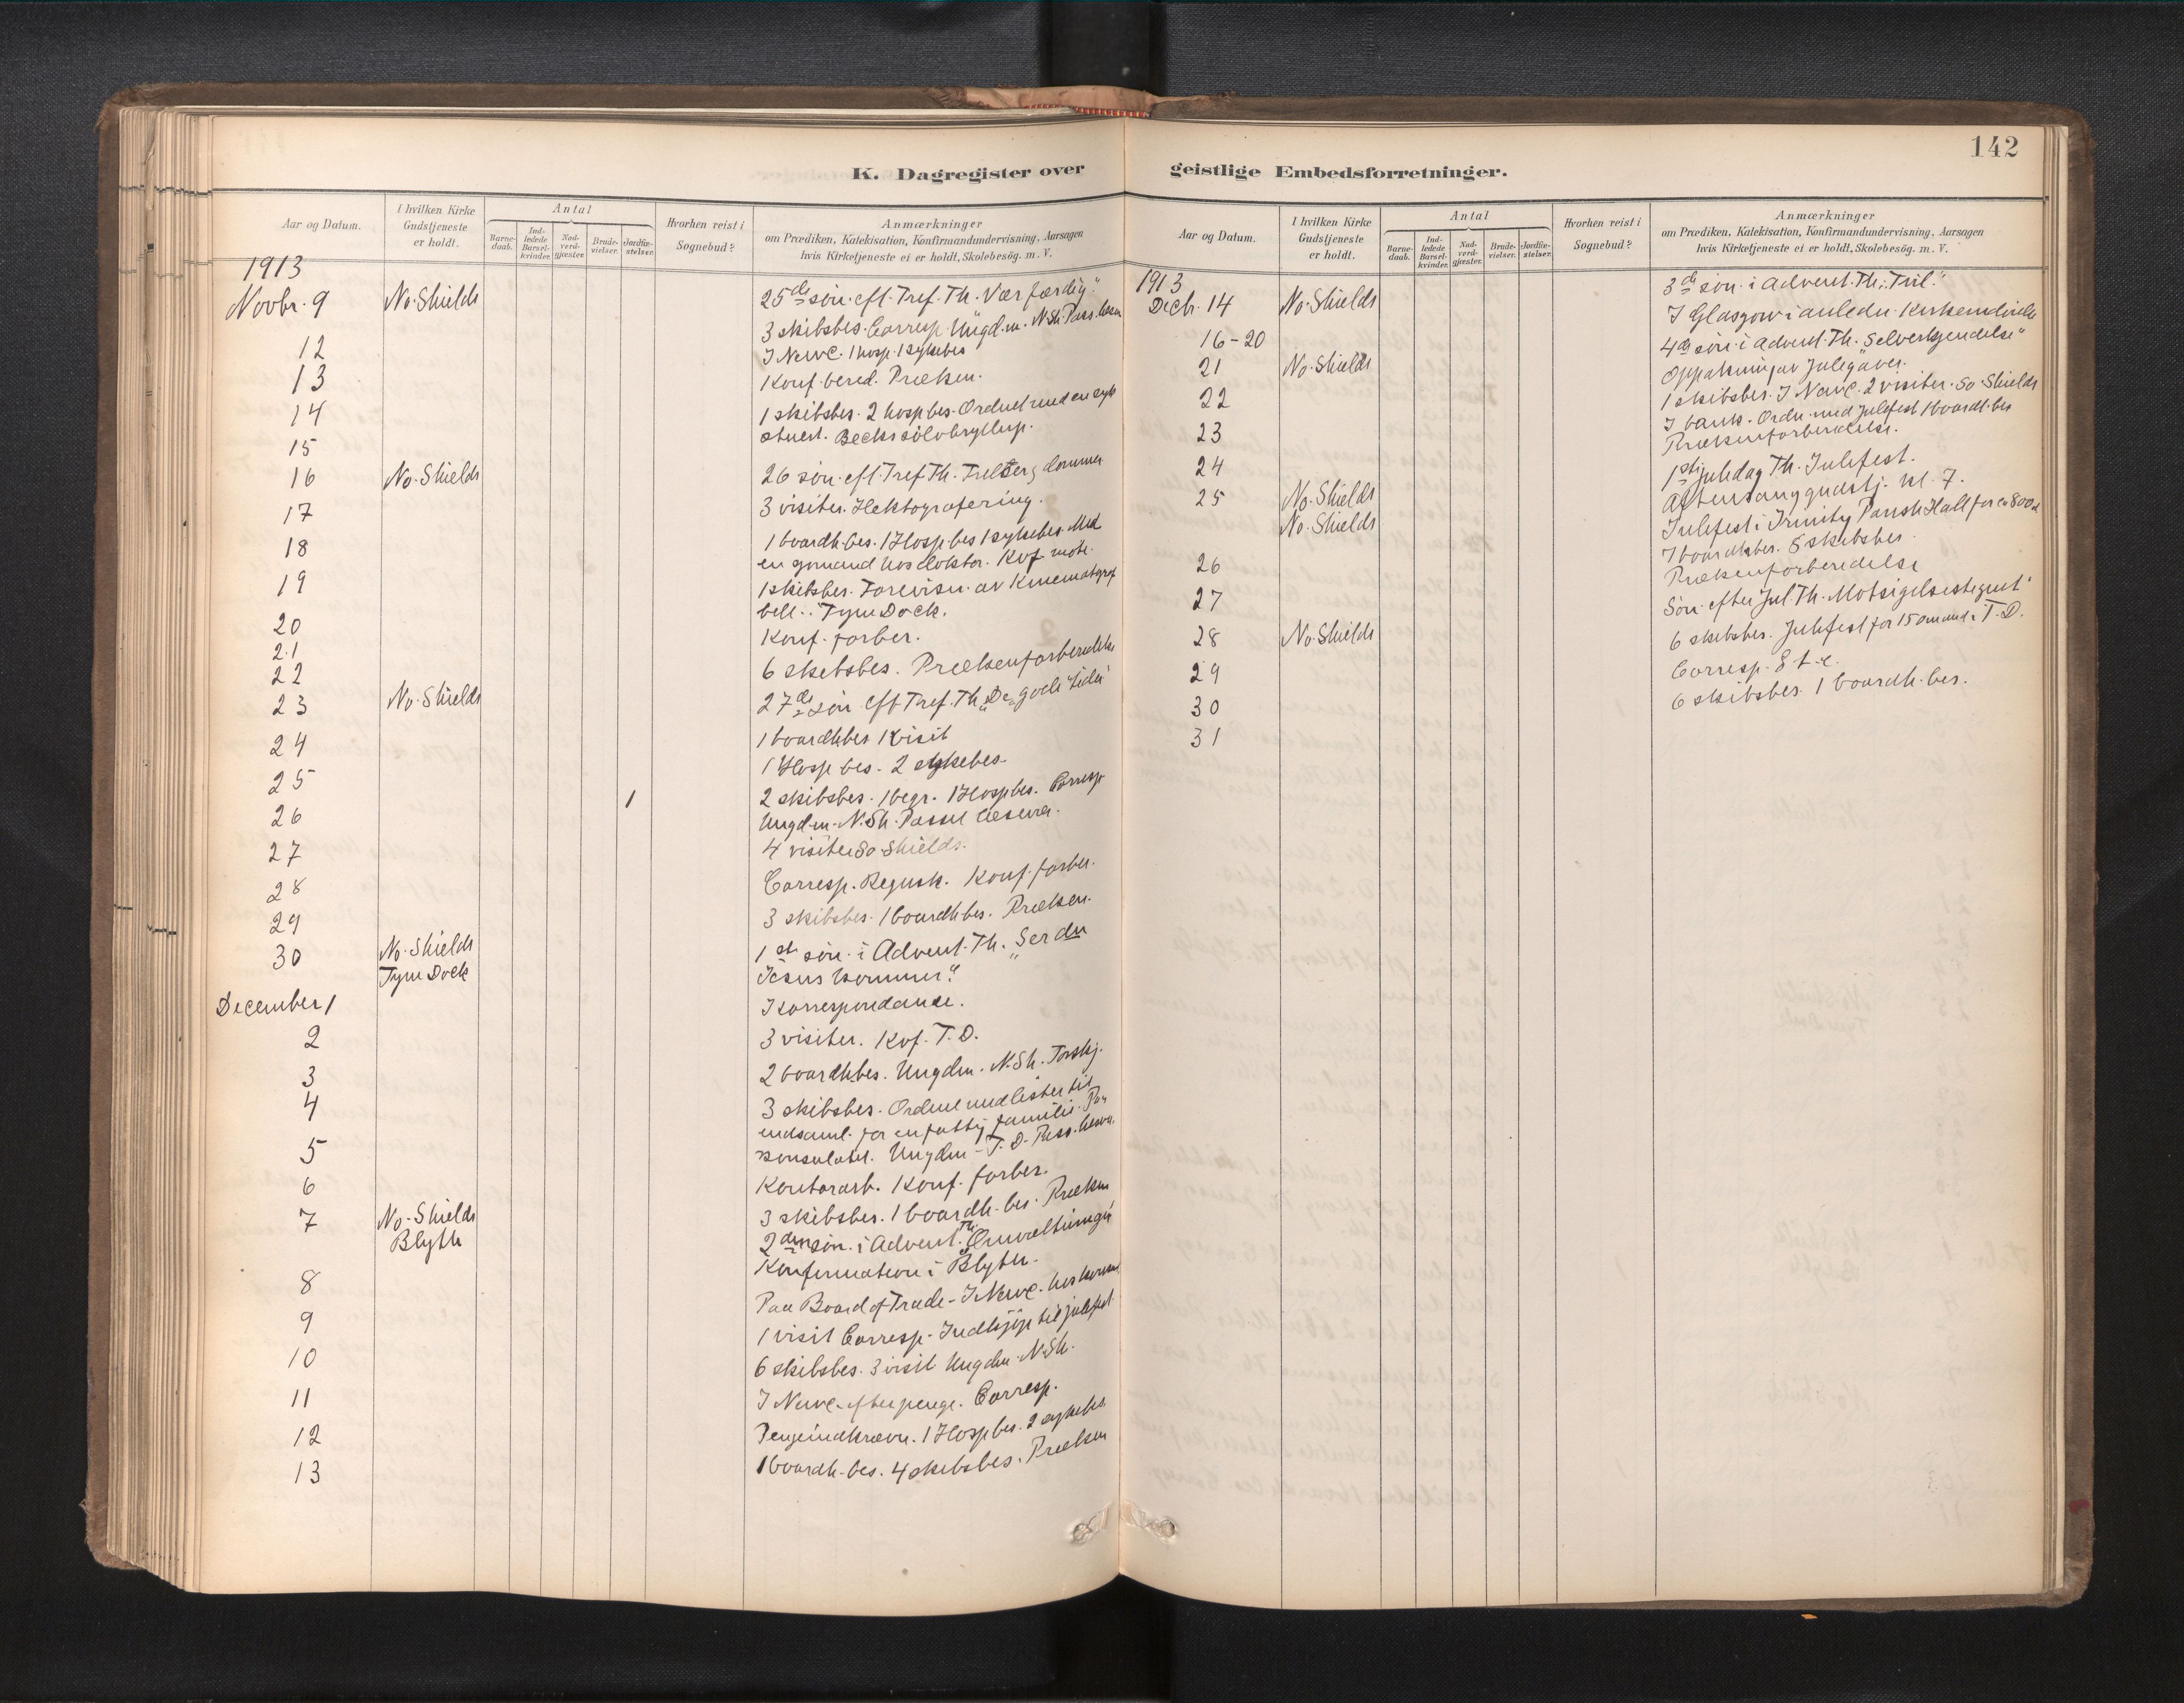 142
K. Dagregister over geistlige Embedsforretninger.
Aar og Datum.
I hvilken Kirke Gudstjeneste er holdt.
Antal
Barnedaab.
Indledede Barselkvinder.
Nadverdgjæster.
Brudevielser.
Jordfæstelser.
Hvorhen reist i Sognebud?
Anmærkninger
om Prædiken, Katekisation, Konfirmandundervisning, Aarsagen
hvis Kirketjeneste ei er holdt, Skolebesög. m. V.
1913
Novbr. 9 No. Shields 25de søn. eft. Tref. Th. Vær færdig."
3 skibsbes. Corresp. Ungd.m. N.Sh. Pass.
12 I Newc. 1 hosp. 1 sykebes
13 Konf. bered. Præken.
14 1 skibsbes. 2 hospbes. Ordnet med en syk
stuert. Becks sölvbryllup.
15
16 No. Shields 26 søn. eft. Tref. Th.
17 3 visiter. Hektografering.
18 1 boardh. bes. 1 Hosp. bes 1 sykebes. Med
en gsmand hos doktor. Kvf. møte.
19 1 skibsbes. Forevisn. av Kinematograf
bill. Tyne Dock.
20 Konf. forber.
21
22 6 skibsbes. Prækenforberedelse
23 No. Shields 27de søn. eft. Tref. Th. "De gode tider"
24 1 boardhbes 1 visit
25 1 Hosp. bes. 2 sykebes.
26 1 2 skibsbes. 1 begr. 1 Hospbes. Corresp
Ungd.m. N.Sh.
27 4 visiter So. Shields.
28 Corresp. Regnsk. Konf. forber.
29 3 skibsbes. 1 boardhbes. Præken.
30 No. Shields 1ste søn. i Advent. Th. "Ser du
Tyne Dock Jesus kommer."
December 1 Korrespondanse.
2 3 visiter. Kvf. T. D.
3 2 boardhbes. Ungdm. N.Sh.
4 3 skibsbes. Ordnet med lister til
indsaml. for en fattig familie. Paa
5 konsulatet. Ungdm. T. D. Pass.
6 Kontorarb. Konf. forber.
7 No. Shields 3 skibsbes. 1 boardh. bes. Præken
Blyth 2den søn. i Advent. Th.
Konfirmation i Blyth.
8 Paa Board of Trade. I Newc. hos
9 1 visit Corresp. Indkjøp til julefest
10 6 skibsbes. 3 visit Ungdm. N.Sh.
11 I Newc. efter penge. Corresp.
12 Pengeindkrævn. 1 Hosp. bes. 2 sykebes.
13 1 boardh. bes. 4 skibsbes. Præken
Aar og Datum.
I hvilken Kirke Gudstjeneste er holdt.
Antal
Barnedaab.
Indledede Barselkvinder.
Nadverdgjæster.
Brudevielser.
Jordfæstelser.
Hvorhen reist i Sognebud?
Anmærkninger
om Prædiken, Katekisation, Konfirmandundervisning, Aarsagen
hvis Kirketjeneste ei er holdt, Skolebesög. m. V.
1913
Decbr. 14 No. Shields 3de søn. i Advent. Th.
16-20 I Glasgow i anledn.
21 No. Shields 4de søn. i Advent. Th. Selverkjendelse"
Oppakning av Julegaver.
22 1 skibsbes. I Newc. 2 visiter. So. Shields
23 I bank. Ordn. med julefest 1 boardh. bes
24 Prækenforberedelse.
25 No. Shields 1ste juledag Th. Julefest.
No. Shields Aftensanggudstj. kl. 7.
Julefest i Trinity Parish Hall for ca 800
26 7 boardhbes. 5 skibsbes.
27 Prækenforberedelse
28 No. Shields Søn. efter Jul Th. Motsigelsestegnet"
29 6 skibsbes. Julefest for 150 mand i T. D.
30 Corresp. E t c.
31 6 skibsbes. 1 boardh. bes.